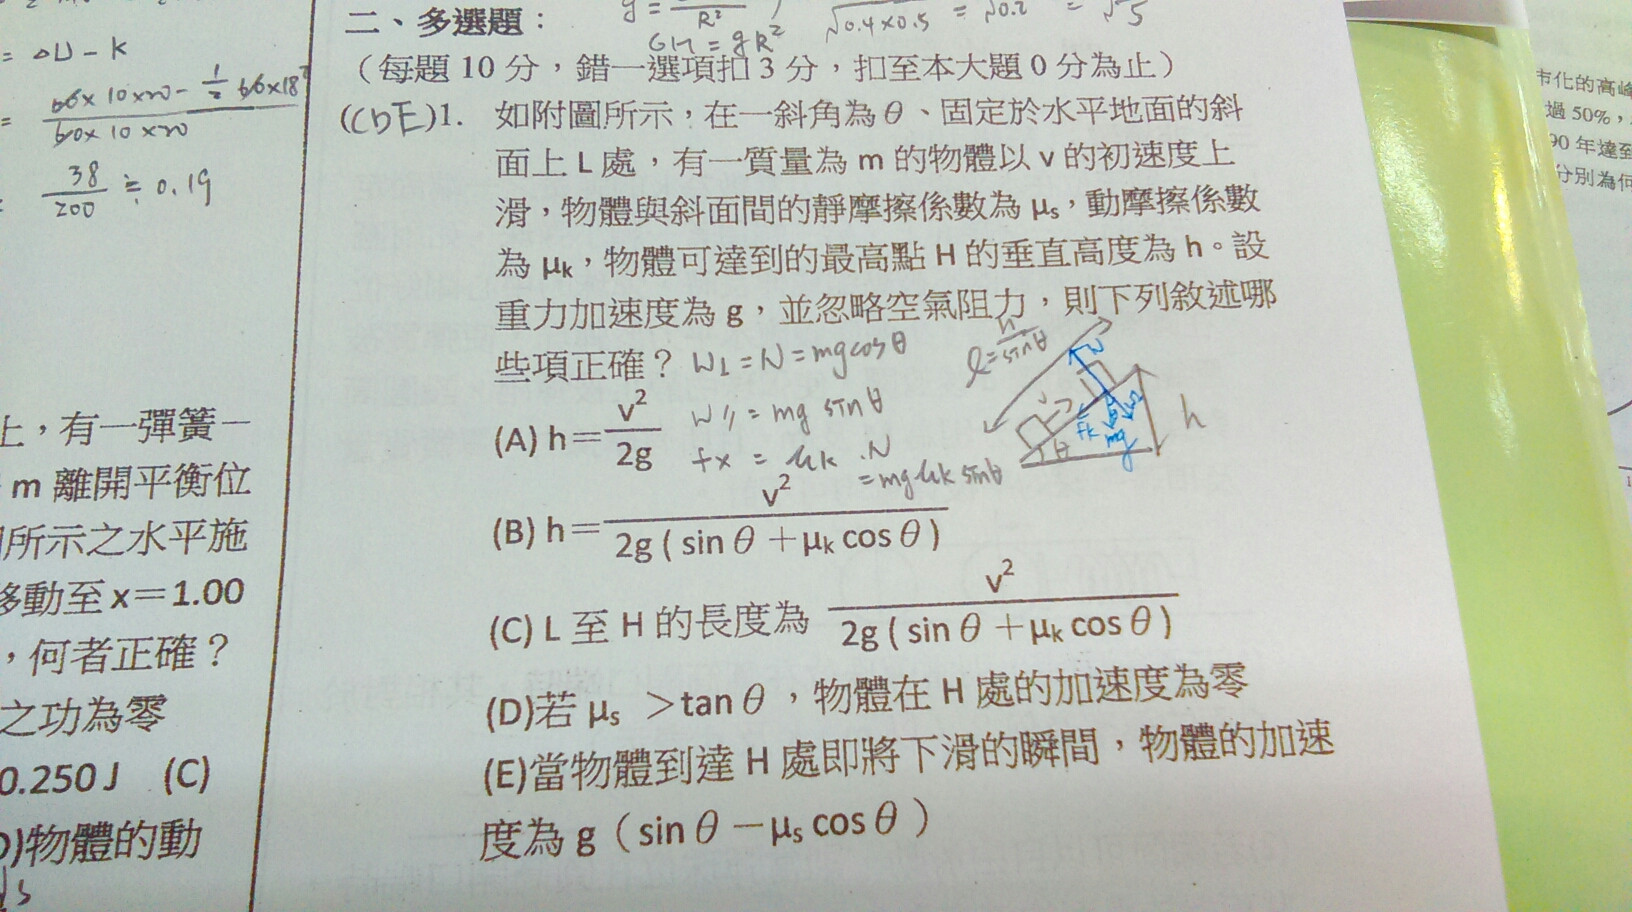 = ΔU - K
= 66×10×20 - 1/2 66×18²
60×10×20
38/200 ≒ 0.19
上，有一彈簧一
m 離開平衡位
所示之水平施
移動至 x＝1.00
，何者正確？
之功為零
0.250 J (C)
)物體的動
g = R²
GM = gR²
√0.4×0.5 = √0.2 = √5
二、多選題：
（每題 10 分，錯一選項扣 3 分，扣至本大題 0 分為止）
(CDE)1. 如附圖所示，在一斜角為 θ、固定於水平地面的斜
面上 L 處，有一質量為 m 的物體以 v 的初速度上
滑，物體與斜面間的靜摩擦係數為 μs，動摩擦係數
為 μk，物體可達到的最高點 H 的垂直高度為 h。設
重力加速度為 g，並忽略空氣阻力，則下列敘述哪
些項正確？ W⊥ = N = mg cosθ
W// = mg sinθ
fx = μk . N
= mg μk sinθ
ℓ = h/sinθ
N
fk
mg
θ
h
(A) h＝v²/2g
(B) h＝v²/2g ( sin θ ＋μk cos θ )
(C) L 至 H 的長度為 v²/2g ( sin θ ＋μk cos θ )
(D)若 μs ＞tan θ ，物體在 H 處的加速度為零
(E)當物體到達 H 處即將下滑的瞬間，物體的加速
度為 g（ sin θ －μs cos θ ）
市化的高峰
過 50%，
90 年達至
分別為何